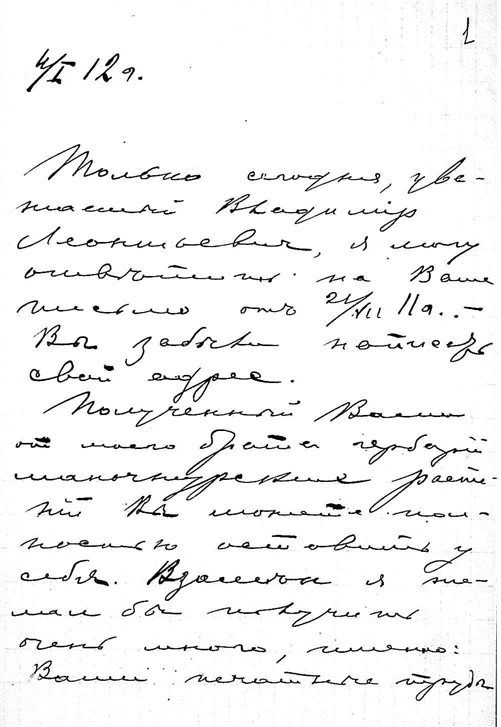 1
4/I 12 г.
Только сегодня, ува-
жаемый Владимір
Леонтьевич, я могу
ответить на Ваше
письмо отъ 21/XII 11 г. –
Вы забыли написать
свой адрес.
Полученный Вами
от моего брата гербарий
маньчжурских расте-
ний Вы можете пол-
ностью оставить у
себя. Взамен я же-
лал бы получить
очень много, именно:
Ваши печатные труды